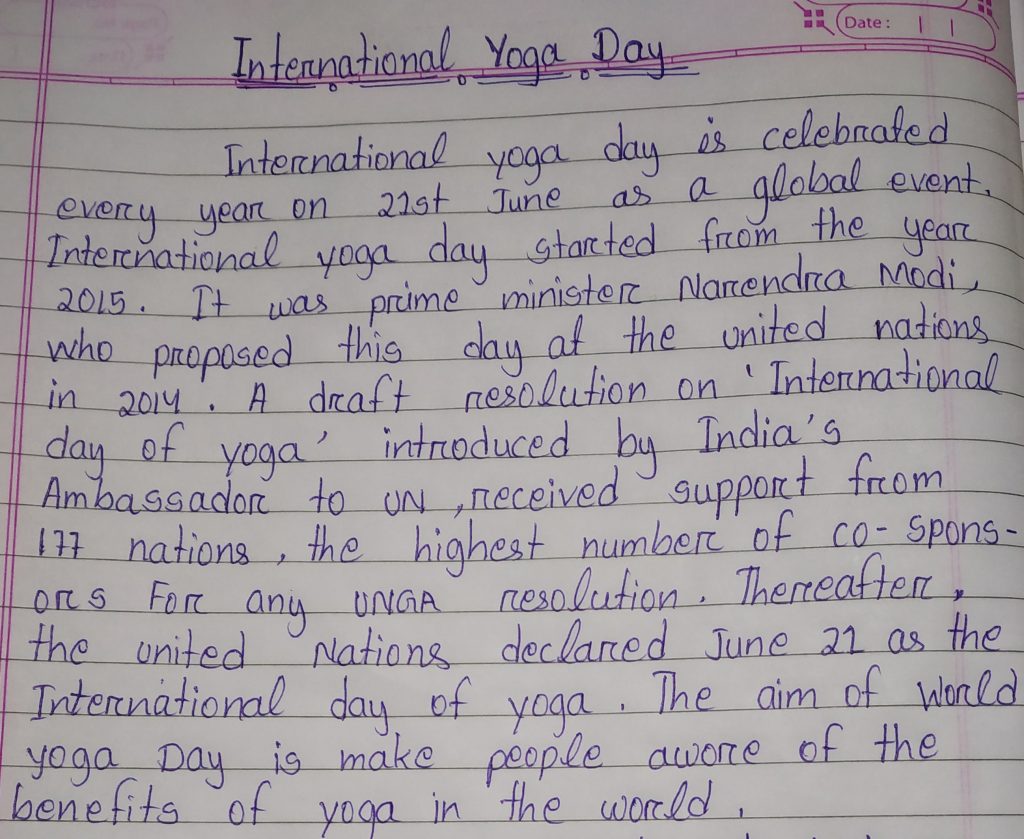 Date:
International Yoga Day
International yoga day is celebrated
every year on 21st June as a global event.
International yoga day started from the year
2015. It was prime minister Narendra Modi,
who proposed this day at the united nations
in 2014. A draft resolution on 'International
day of yoga' introduced by India's
Ambassador to UN, received support from
177 nations, the highest number of co-spons-
ors For any UNGA resolution. Thereafter,
the united Nations declared June 21 as the
International day of yoga. The aim of World
yoga Day is make people aware of the
benefits of yoga in the world.